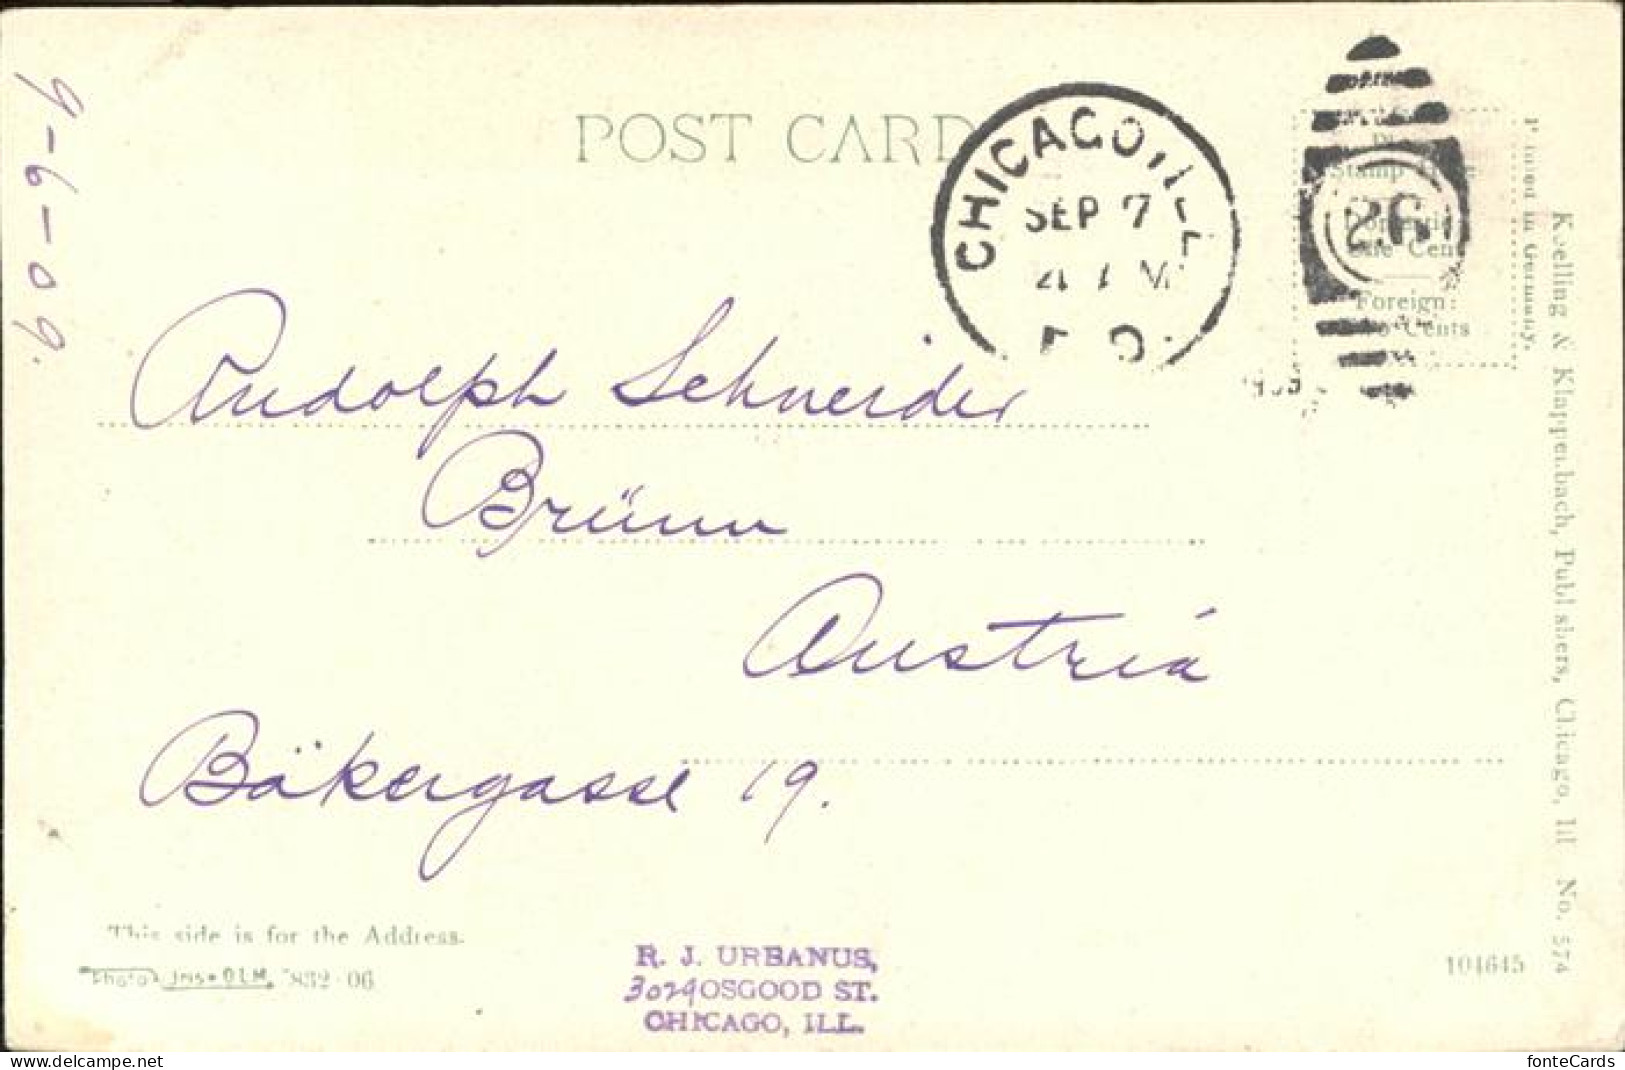 9-6-09
POST CARD
CHICAGO, ILL
SEP 7
26
Stamp
Domestic
One Cent
Foreign:
Cents
Printed in Germany.
Koelling & Klappenbach, Publishers, Chicago, Ill No. 574
Rudolph Schneider
Brünn
Austria
Bäkergasse 19.
This side is for the Address.
Photo Jas OLM, 832-06
104645
R. J. URBANUS,
3029 OSGOOD ST.
CHICAGO, ILL.
fonteCards
https://www.delcampe.net